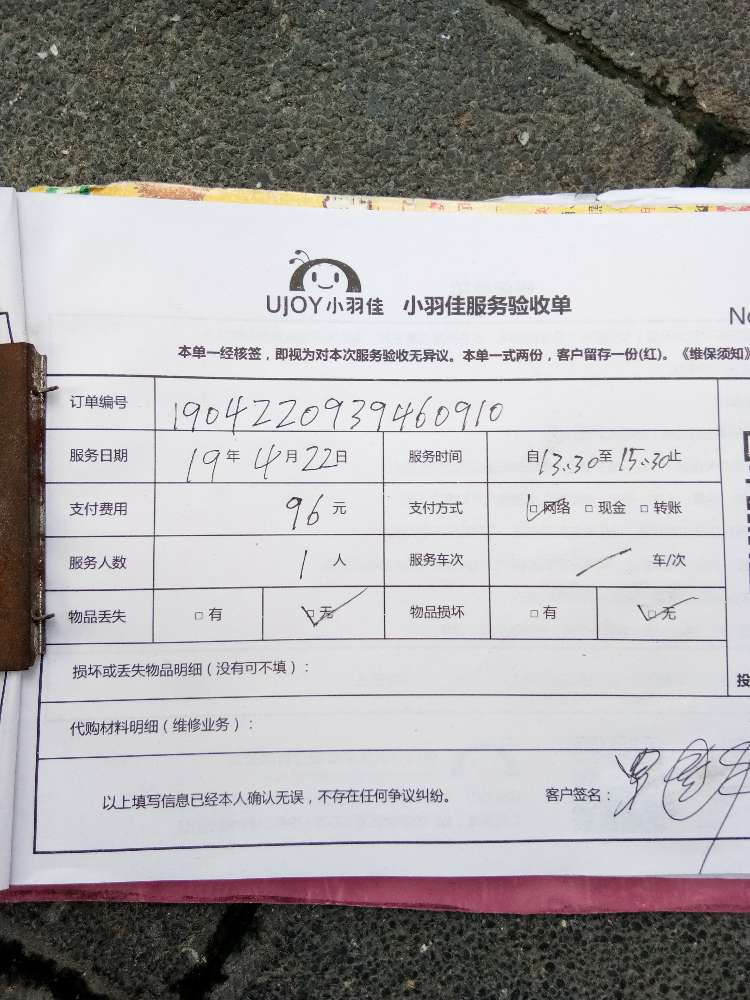 UJOY小羽佳 小羽佳服务验收单
No
本单一经核签，即视为对本次服务验收无异议。本单一式两份，客户留存一份(红)。《维保须知》
订单编号 1904220939460910
服务日期 19年4月22日 服务时间 自13:30至15:30止
支付费用 96元 支付方式 □网络 □现金 □转账
服务人数 1人 服务车次 / 车/次
物品丢失 □有 □无 物品损坏 □有 □无
损坏或丢失物品明细（没有可不填）：
投
代购材料明细（维修业务）：
以上填写信息已经本人确认无误，不存在任何争议纠纷。 客户签名：